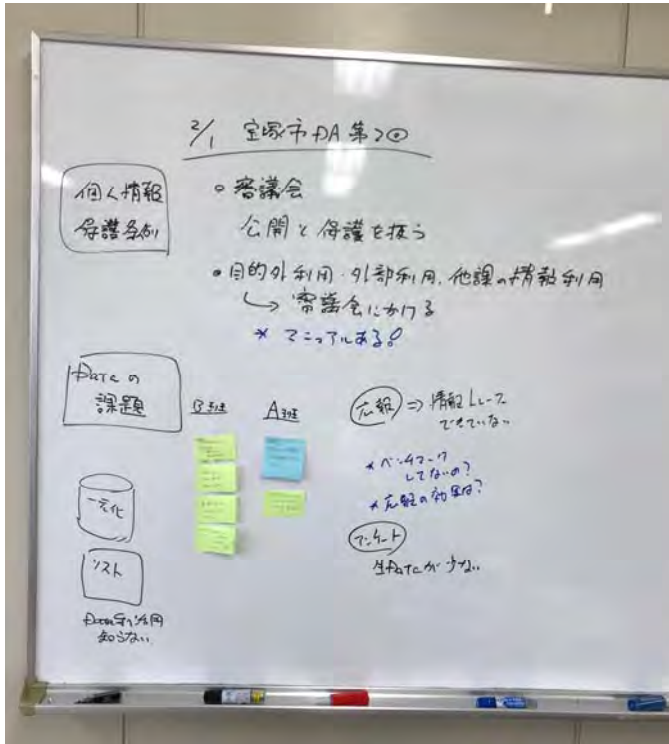 2/1 宝塚市DA 第2回
個人情報
保護条例
○ 審議会
公開と保護を扱う
● 目的外利用・外部利用、他課の情報利用
↳ 審議会にかける
* マニュアルある?
Dataの
課題
B班
A班
広報 ⇒ 情報トレース
できていない
* ベンチマーク
してないの?
* 広報の効果は?
一元化
アンケート
生Dataが少ない
リスト
Data利活用
知らない